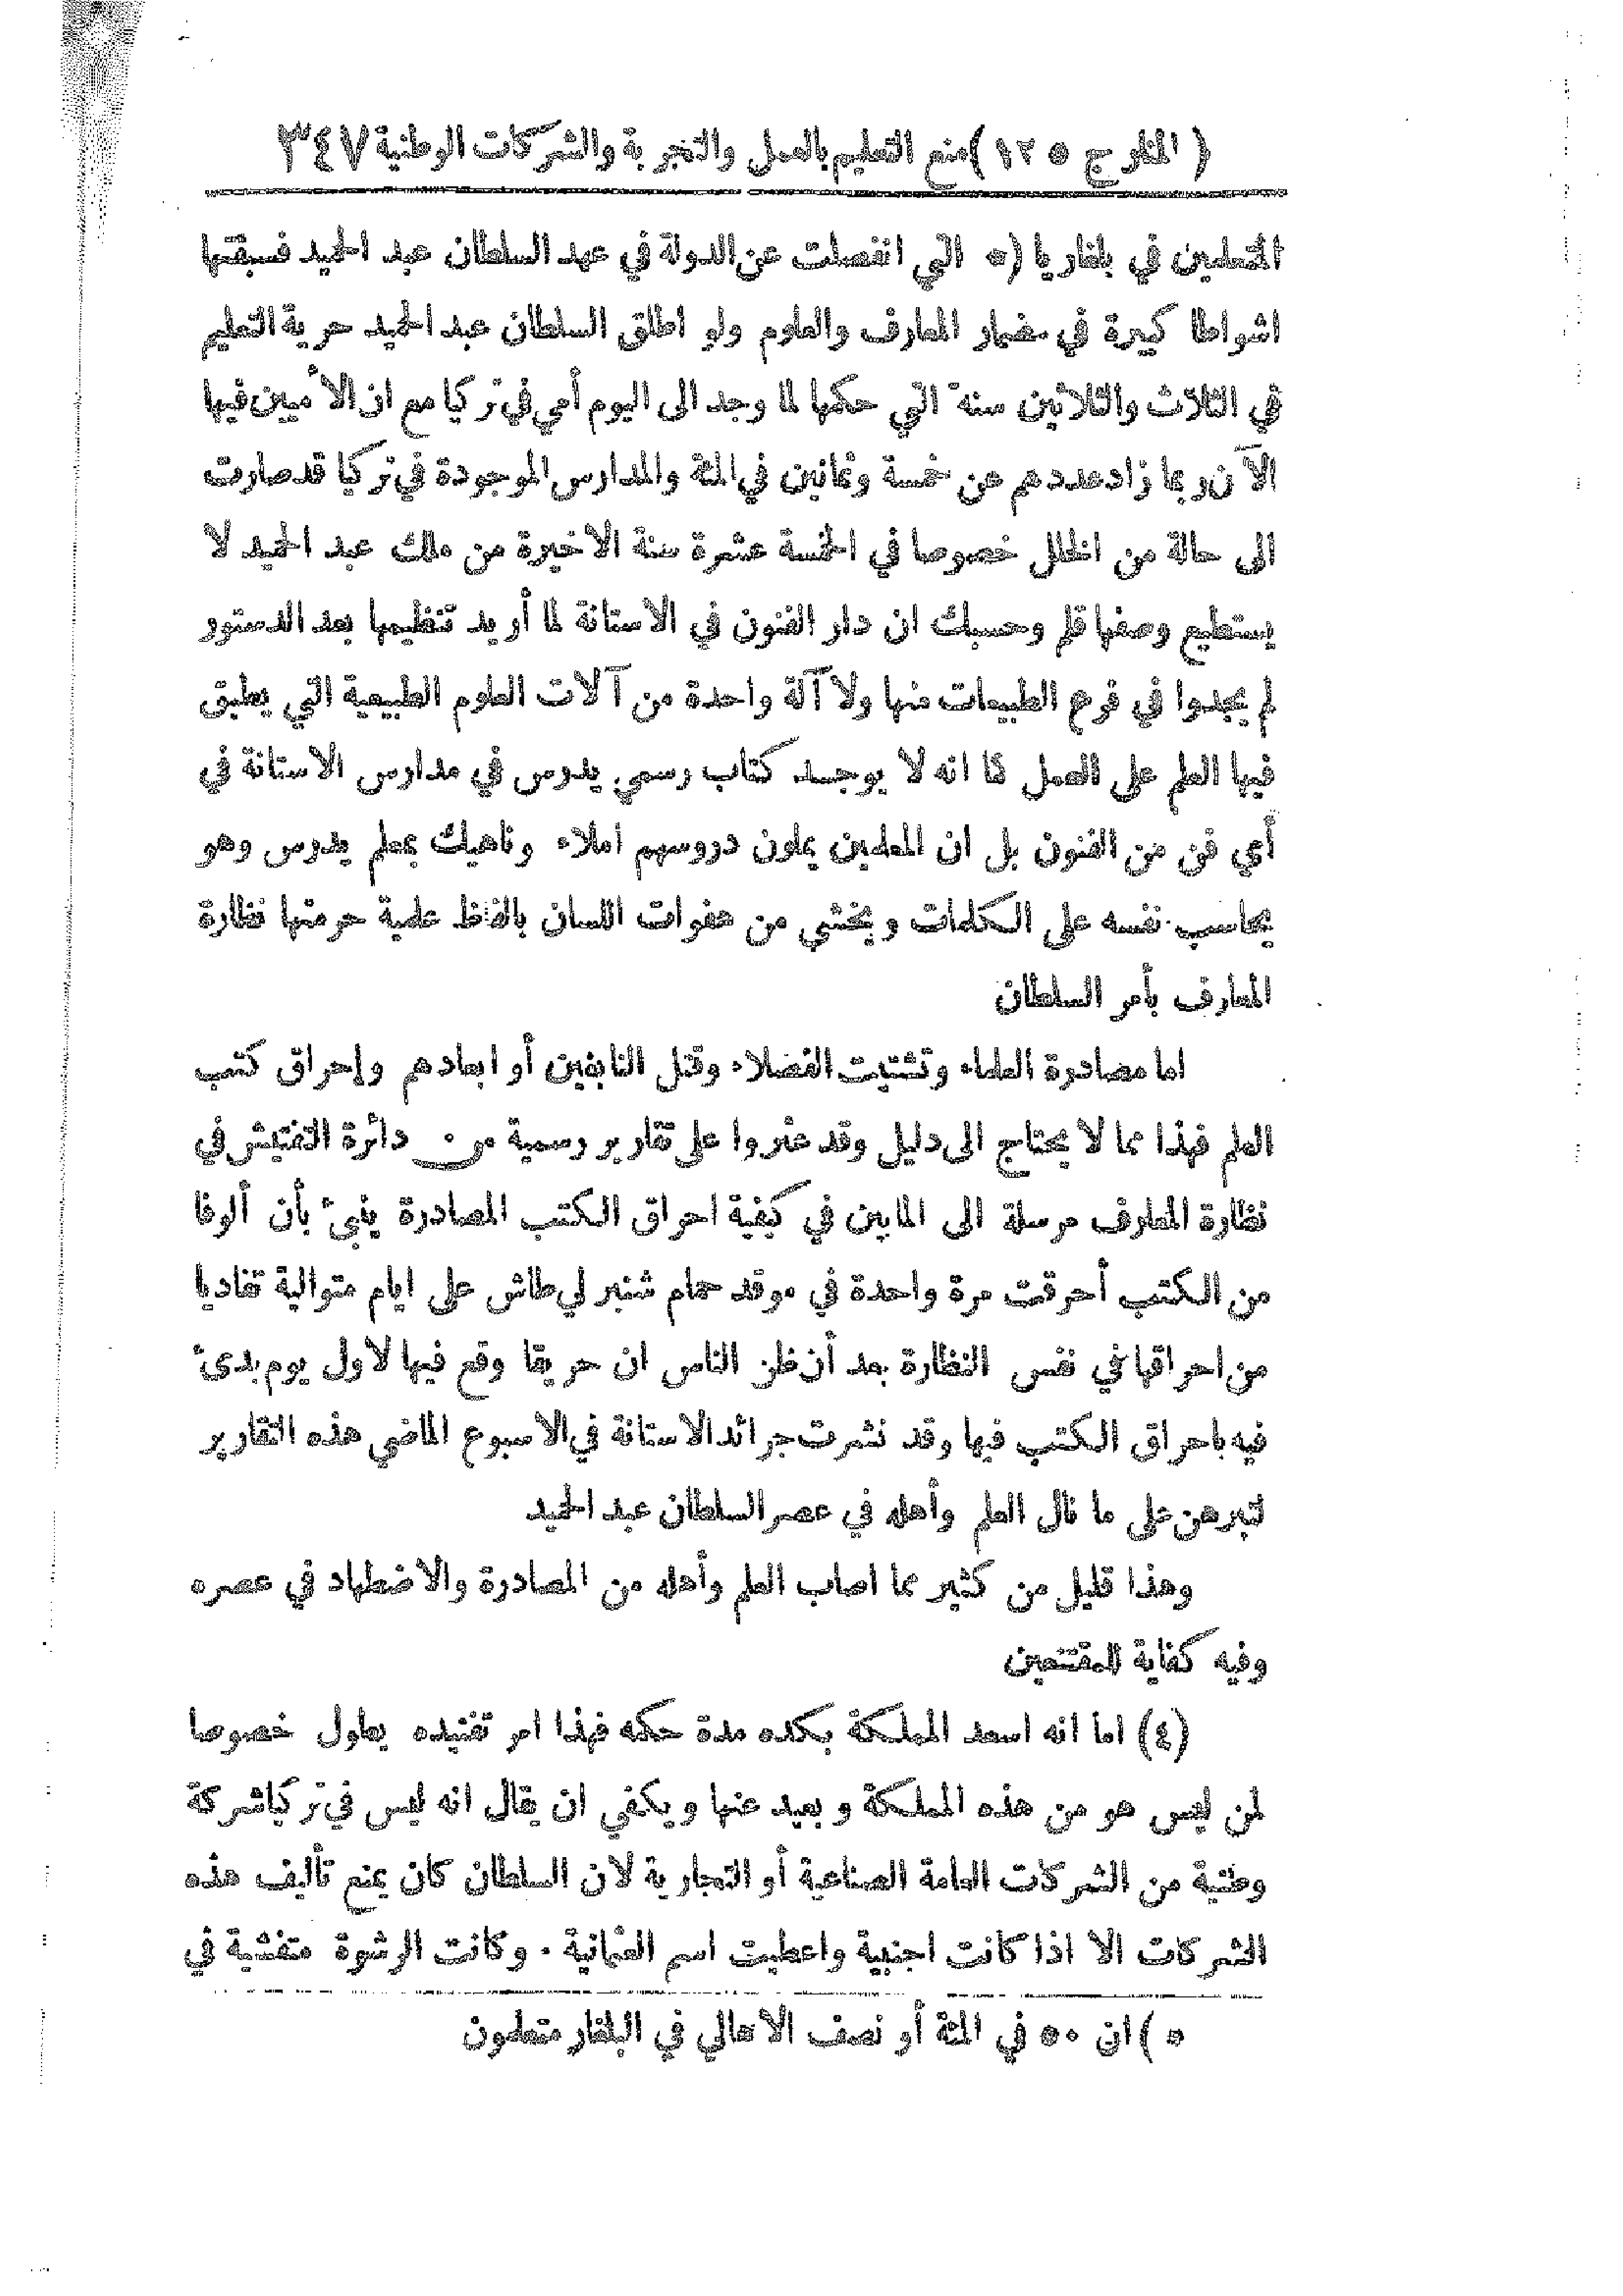 ( المنار ج ٥ م ١٢ ) منع التعليم بالعمل والتجربة والشركات الوطنية ٣٤٧
المتعلمين في بلغاريا (٥ التي انفصلت عن الدولة في عهد السلطان عبد الحميد فسبقتها
اشواطا كبيرة في مضمار المعارف والعلوم ولو اطلق السلطان عبد الحميد حرية التعليم
في الثلاث والثلاثين سنة التي حكمها لما وجد الى اليوم أمي في تركيا مع ان الأميين فيها
الآن ربما زاد عددهم عن خمسة وثمانين في المئة والمدارس الموجودة في تركيا قد صارت
الى حالة من الخلل خصوصا في الخمسة عشرة سنة الاخيرة من ملك عبد الحميد لا
يستطيع وصفها قلم وحسبك ان دار الفنون في الاستانة لما أريد تنظيمها بعد الدستور
لم يجدوا في فرع الطبيعات منها ولا آلة واحدة من آلات العلوم الطبيعية التي يطبق
فيها العلم على العمل كما انه لا يوجد كتاب رسمي يدرس في مدارس الاستانة في
أي فن من الفنون بل ان المعلمين يملون دروسهم املاء وناهيك بمعلم يدرس وهو
يحاسب نفسه على الكلمات ويخشى من هفوات اللسان بالفاظ علمية حرمتها نظارة
المعارف بأمر السلطان
اما مصادرة العلماء وتشتيت الفضلاء وقتل النابغين أو ابعادهم وإحراق كتب
العلم فهذا مما لا يحتاج الى دليل وقد عثروا على تقارير رسمية من دائرة التفتيش في
نظارة المعارف مرسلة الى المابين في كيفية احراق الكتب المصادرة ينبئ بأن ألوفا
من الكتب أحرقت مرة واحدة في موقد حمام شنبرلي طاش على ايام متوالية تفاديا
من احراقها في نفس النظارة بعد أن ظن الناس ان حريقا وقع فيها لاول يوم بدئ
فيه باحراق الكتب فيها وقد نشرت جرائد الاستانة في الاسبوع الماضي هذه التقارير
لتبرهن على ما نال العلم وأهله في عصر السلطان عبد الحميد
وهذا قليل من كثير مما اصاب العلم وأهله من المصادرة والاضطهاد في عصره
وفيه كفاية للمقتنعين
(٤) اما انه اسعد المملكة بكده مدة حكمه فهذا امر تفنيده يطول خصوصا
لمن ليس هو من هذه المملكة وبعيد عنها ويكفي ان يقال انه ليس في تركيا شركة
وطنية من الشركات العامة الصناعية أو التجارية لان السلطان كان يمنع تأليف هذه
الشركات الا اذا كانت اجنبية واعطيت اسم العثمانية . وكانت الرشوة متفشية في
٥ ) ان ٥٠ في المئة أو نصف الاهالي في البلغار متعلمون